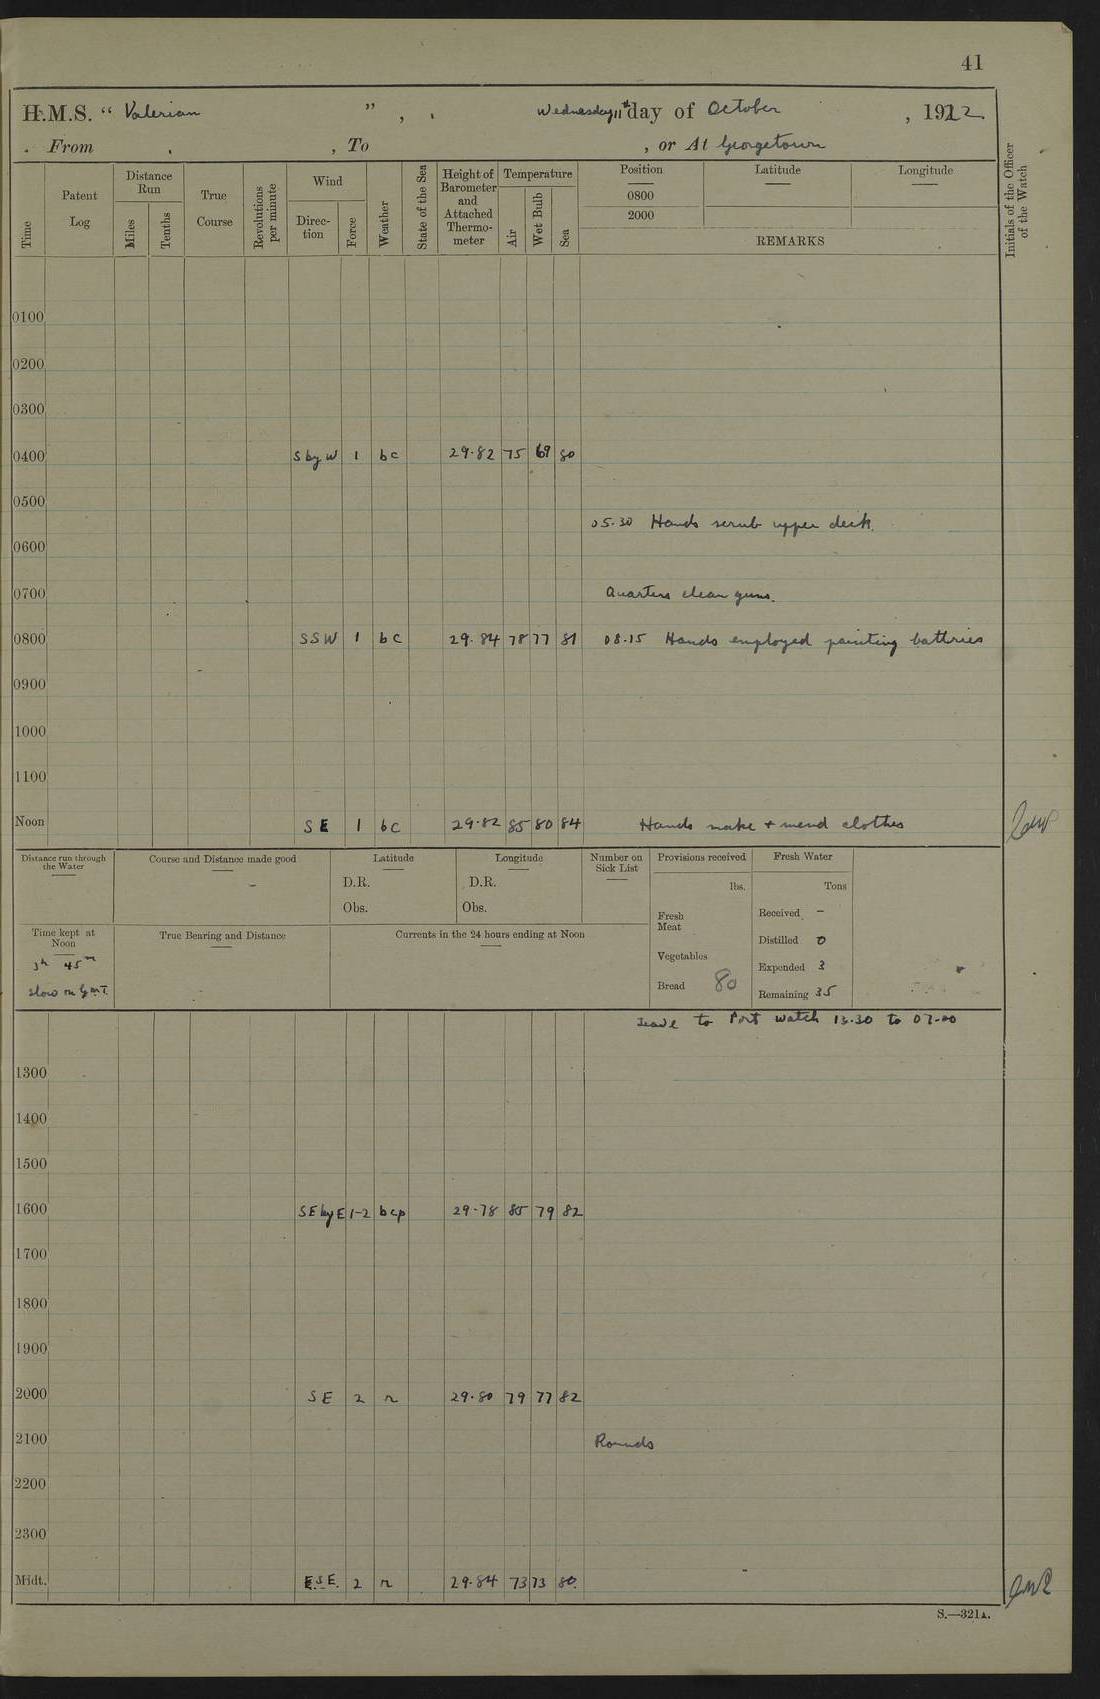 41
H.M.S. “ Valerian ” , Wednesday 11th day of October , 1922
From , To , or At Georgetown
Time Patent Log Distance Run Miles Tenths True Course Revolutions per minute Wind Direction Force Weather State of the Sea Height of Barometer and Attached Thermometer Temperature Air Wet Bulb Sea Position 0800 2000 Latitude Longitude
REMARKS
Initials of the Officer of the Watch
0100
0200
0300
0400 S by W 1 bc 29.82 75 69 80
0500
05.30 Hands scrub upper deck.
0600
0700 Quarters clean guns.
0800 SSW 1 bc 29.84 78 77 81 08.15 Hands employed painting battries
0900
1000
1100
Noon SE 1 bc 29.82 85 80 84 Hands make + mend clothes
Distance run through the Water Course and Distance made good Latitude Longitude Number on Sick List Provisions received Fresh Water
D.R. D.R. lbs. Tons
Obs. Obs. Fresh Meat Received –
Time kept at Noon True Bearing and Distance Currents in the 24 hours ending at Noon Distilled 0
3h 45m Vegetables Expended 3
slow on G.M.T. Bread 80 Remaining 35
Leave to Port Watch 13.30 to 07.00
1300
1400
1500
1600 SE by E 1-2 bcp 29.78 85 79 82
1700
1800
1900
2000 SE 2 r 29.80 79 77 82
2100 Rounds
2200
2300
Midt. ESE. 2 r 29.84 73 73 80.
S.—321A.